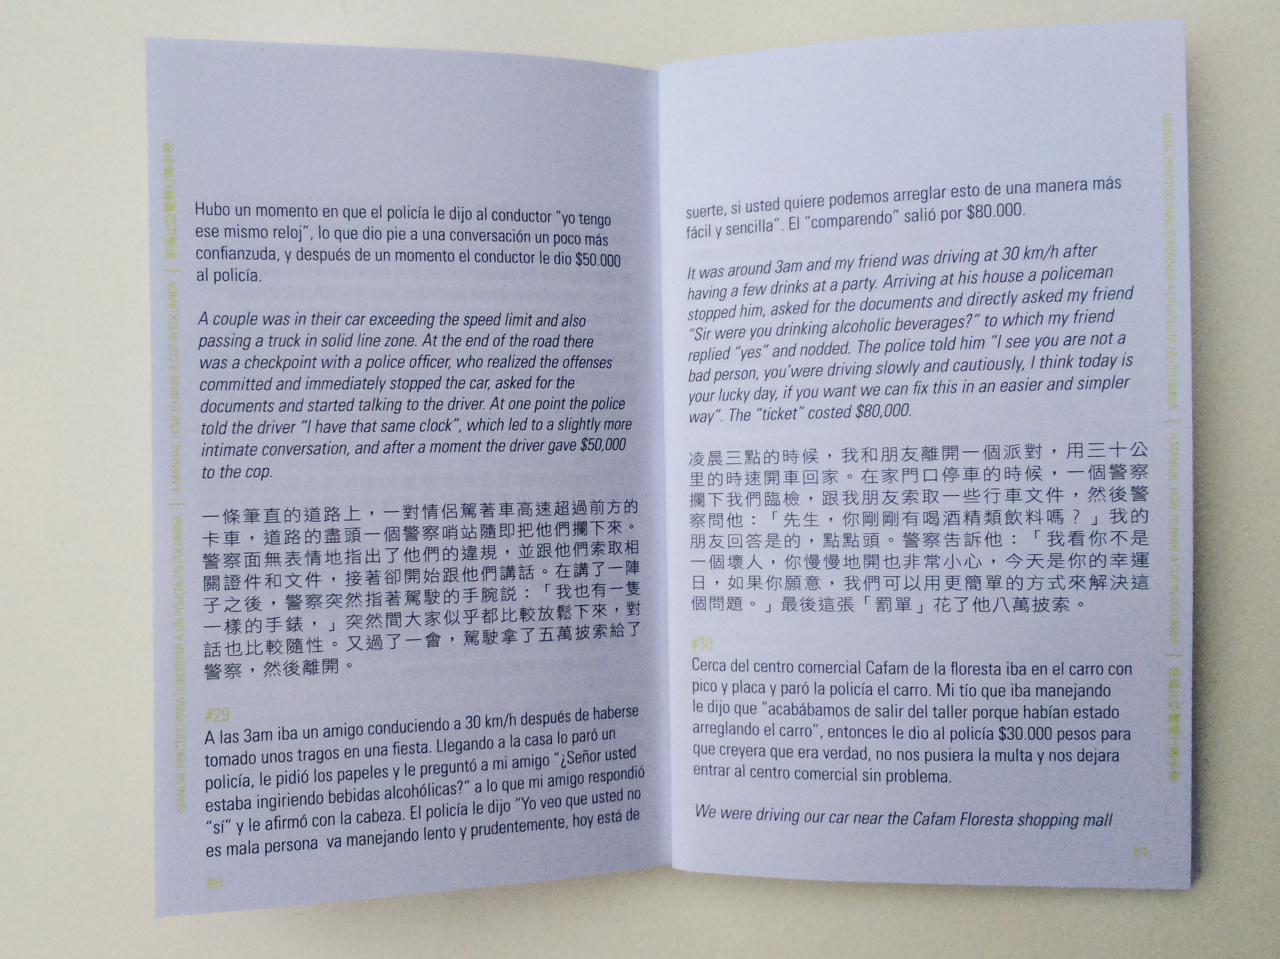 Hubo un momento en que el policía le dijo al conductor "yo tengo
ese mismo reloj", lo que dio pie a una conversación un poco más
confianzuda, y después de un momento el conductor le dio $50.000
al policía.
A couple was in their car exceeding the speed limit and also
passing a truck in solid line zone. At the end of the road there
was a checkpoint with a police officer, who realized the offenses
committed and immediately stopped the car, asked for the
documents and started talking to the driver. At one point the police
told the driver "I have that same clock", which led to a slightly more
intimate conversation, and after a moment the driver gave $50,000
to the cop.
一條筆直的道路上，一對情侶駕著車高速超過前方的
卡車，道路的盡頭一個警察哨站隨即把他們攔下來。
警察面無表情地指出了他們的違規，並跟他們索取相
關證件和文件，接著卻開始跟他們講話。在講了一陣
子之後，警察突然指著駕駛的手腕說：「我也有一隻
一樣的手錶，」突然間大家似乎都比較放鬆下來，對
話也比較隨性。又過了一會，駕駛拿了五萬披索給了
警察，然後離開。
#29
A las 3am iba un amigo conduciendo a 30 km/h después de haberse
tomado unos tragos en una fiesta. Llegando a la casa lo paró un
policía, le pidió los papeles y le preguntó a mi amigo "¿Señor usted
estaba ingiriendo bebidas alcohólicas?" a lo que mi amigo respondió
"sí" y le afirmó con la cabeza. El policía le dijo "Yo veo que usted no
es mala persona va manejando lento y prudentemente, hoy está de
80
suerte, si usted quiere podemos arreglar esto de una manera más
fácil y sencilla". El "comparendo" salió por $80.000.
It was around 3am and my friend was driving at 30 km/h after
having a few drinks at a party. Arriving at his house a policeman
stopped him, asked for the documents and directly asked my friend
"Sir were you drinking alcoholic beverages?" to which my friend
replied "yes" and nodded. The police told him "I see you are not a
bad person, you'were driving slowly and cautiously, I think today is
your lucky day, if you want we can fix this in an easier and simpler
way". The "ticket" costed $80,000.
凌晨三點的時候，我和朋友離開一個派對，用三十公
里的時速開車回家。在家門口停車的時候，一個警察
攔下我們臨檢，跟我朋友索取一些行車文件，然後警
察問他：「先生，你剛剛有喝酒精類飲料嗎？」我的
朋友回答是的，點點頭。警察告訴他：「我看你不是
一個壞人，你慢慢地開也非常小心，今天是你的幸運
日，如果你願意，我們可以用更簡單的方式來解決這
個問題。」最後這張「罰單」花了他八萬披索。
#30
Cerca del centro comercial Cafam de la floresta iba en el carro con
pico y placa y paró la policía el carro. Mi tío que iba manejando
le dijo que "acabábamos de salir del taller porque habían estado
arreglando el carro", entonces le dio al policía $30.000 pesos para
que creyera que era verdad, no nos pusiera la multa y nos dejara
entrar al centro comercial sin problema.
We were driving our car near the Cafam Floresta shopping mall
81